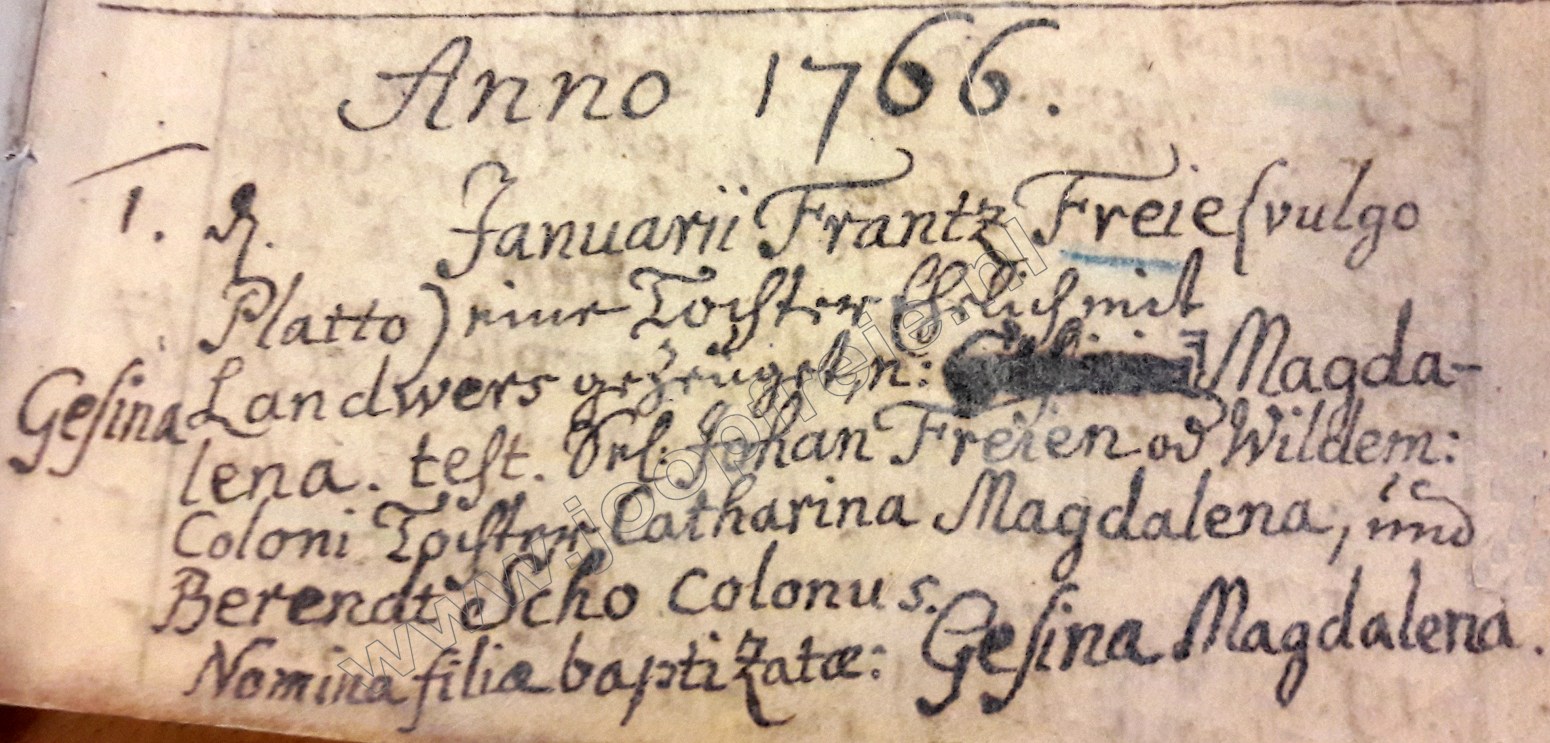 Anno 1766.
1. d. Januarii Frantz Freie (vulgo
Platto) eine Tochter Ehelich mit
Landwers gezeuget, n: Magda-
Gesina
lena. test. Sel: Johan Freien od Wildem:
Coloni Tochter Catharina Magdalena, und
Berendt Scho Colonus.
Nomina filiæ baptizatæ: Gesina Magdalena.
www.joopfreije.nl